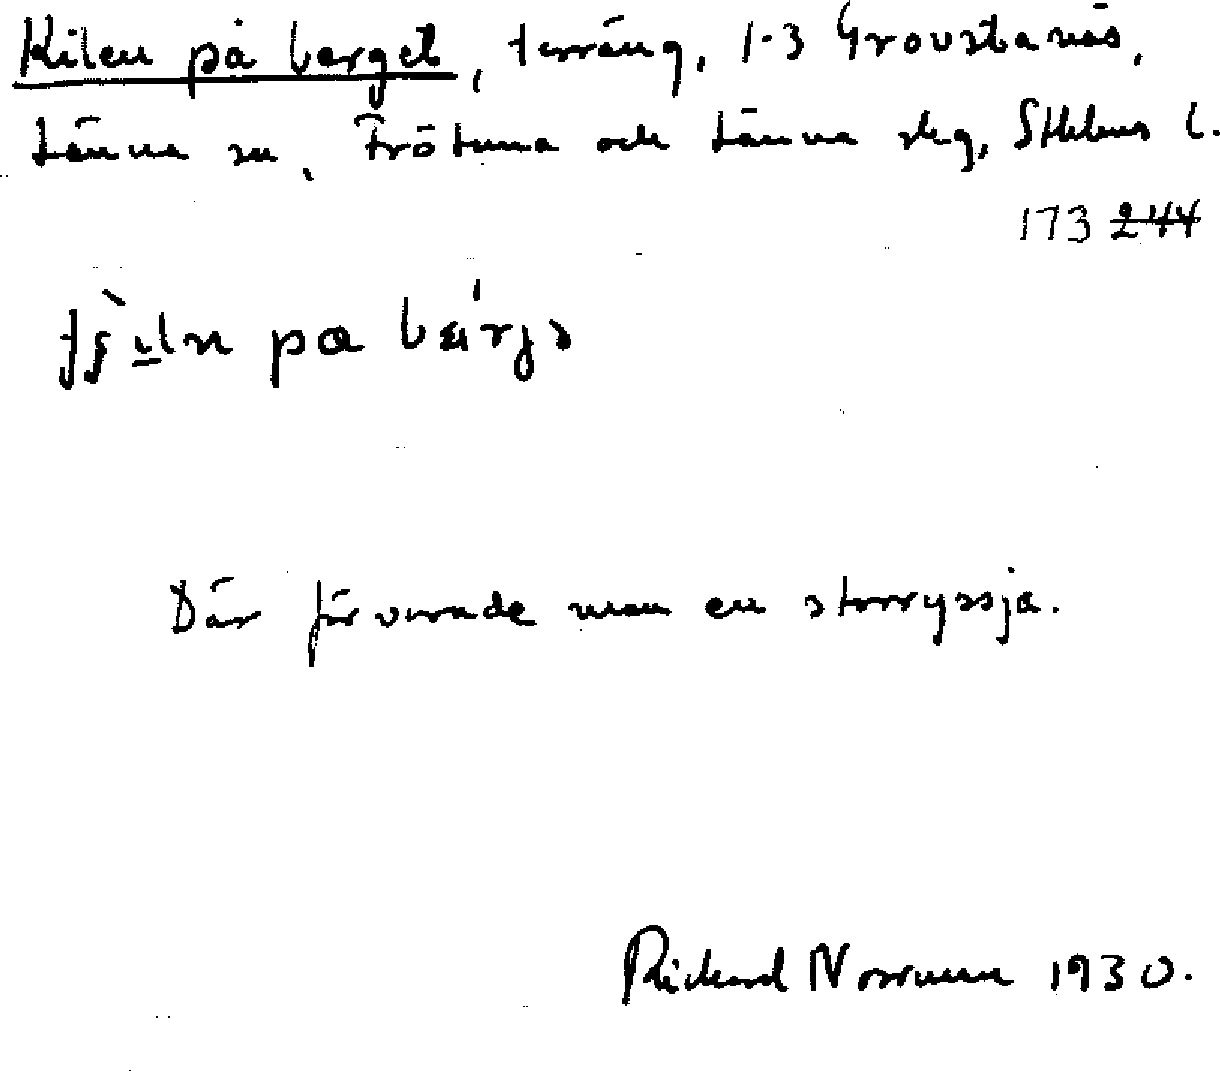 Kilen på berget, terräng, 1-3 Grovstanäs,
Länna sn, Frötuna och Länna skg, Sthlms l.
173 244
pa
Där förvarade man en storryssja.
Rickard Norrman 1930.